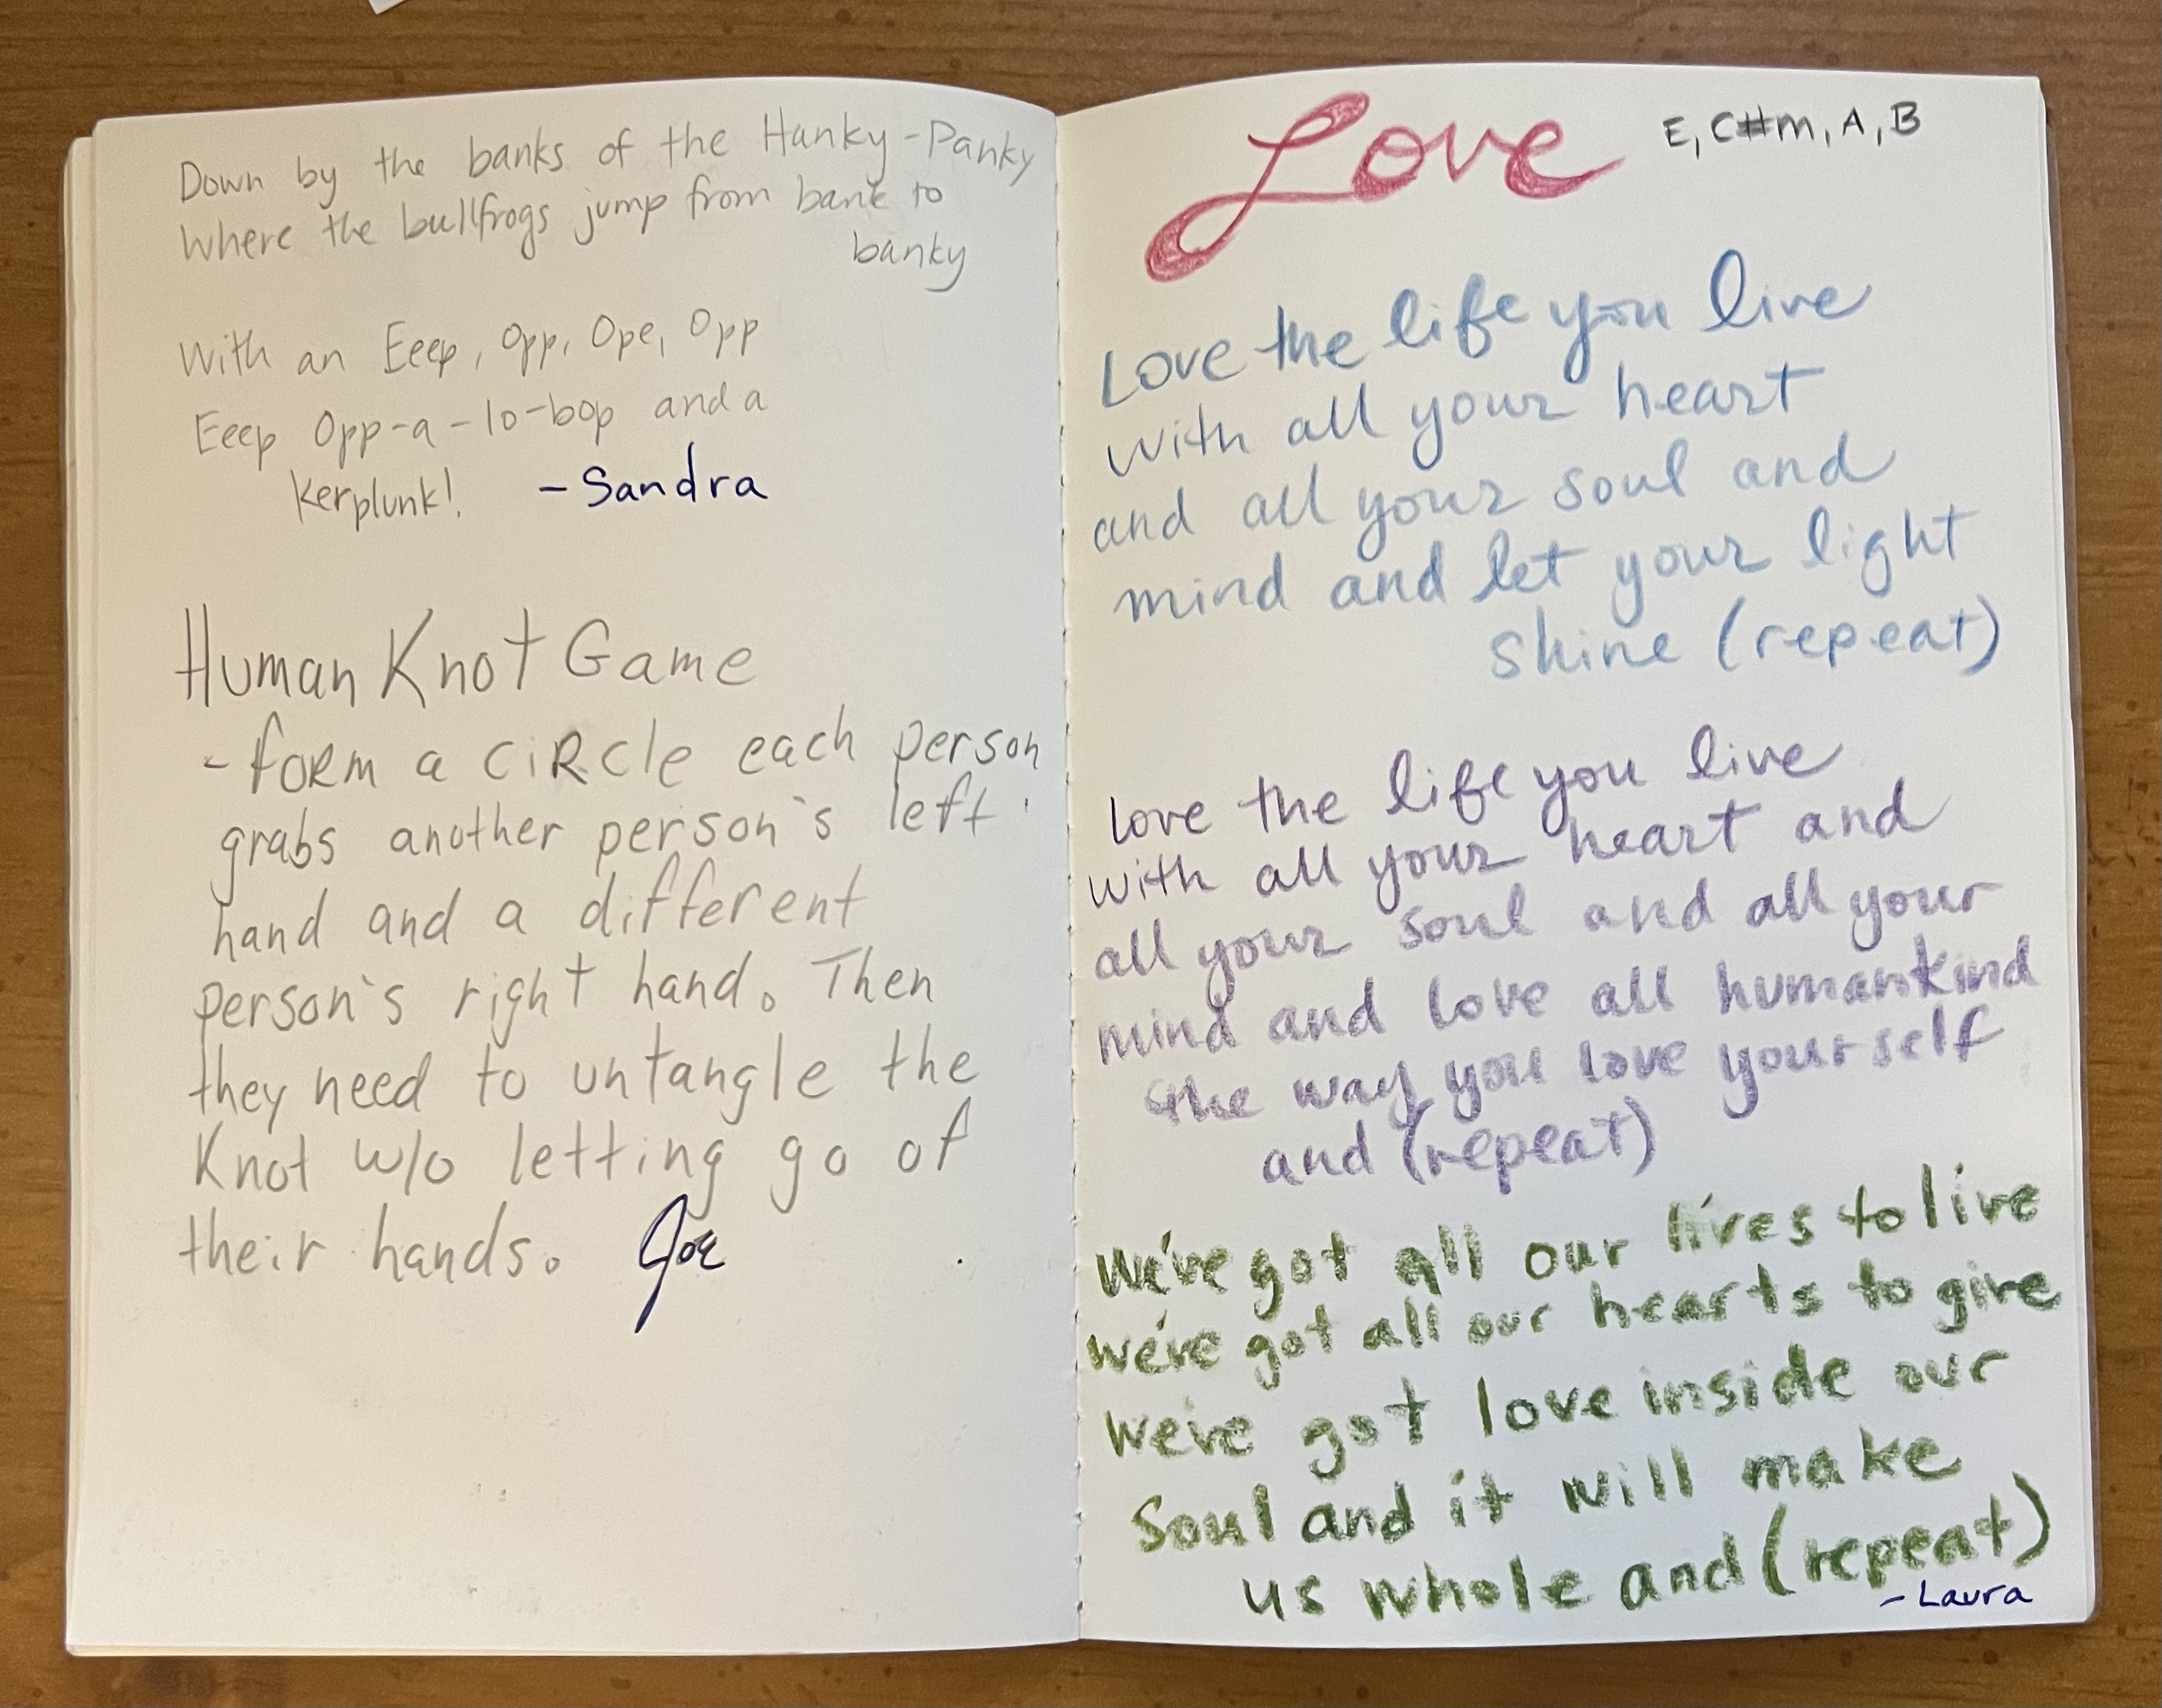 Down by the banks of the Hanky-Panky
Where the bullfrogs jump from bank to
banky
With an Eeep, Opp, Ope, Opp
Eeep Opp-a-lo-bop and a
Kerplunk! - Sandra
Human Knot Game
- form a ciRcle each person
grabs another person's left
hand and a different
person's right hand. Then
they need to untangle the
Knot w/o letting go of
their hands. Joe
Love E, C#m, A, B
Love the life you live
with all your heart
and all your soul and
mind and let your light
shine (repeat)
love the life you live
with all your heart and
all your soul and all your
mind and love all humankind
the way you love yourself
and (repeat)
We've got all our lives to live
we've got all our hearts to give
we've got love inside our
soul and it will make
us whole and (repeat)
- Laura